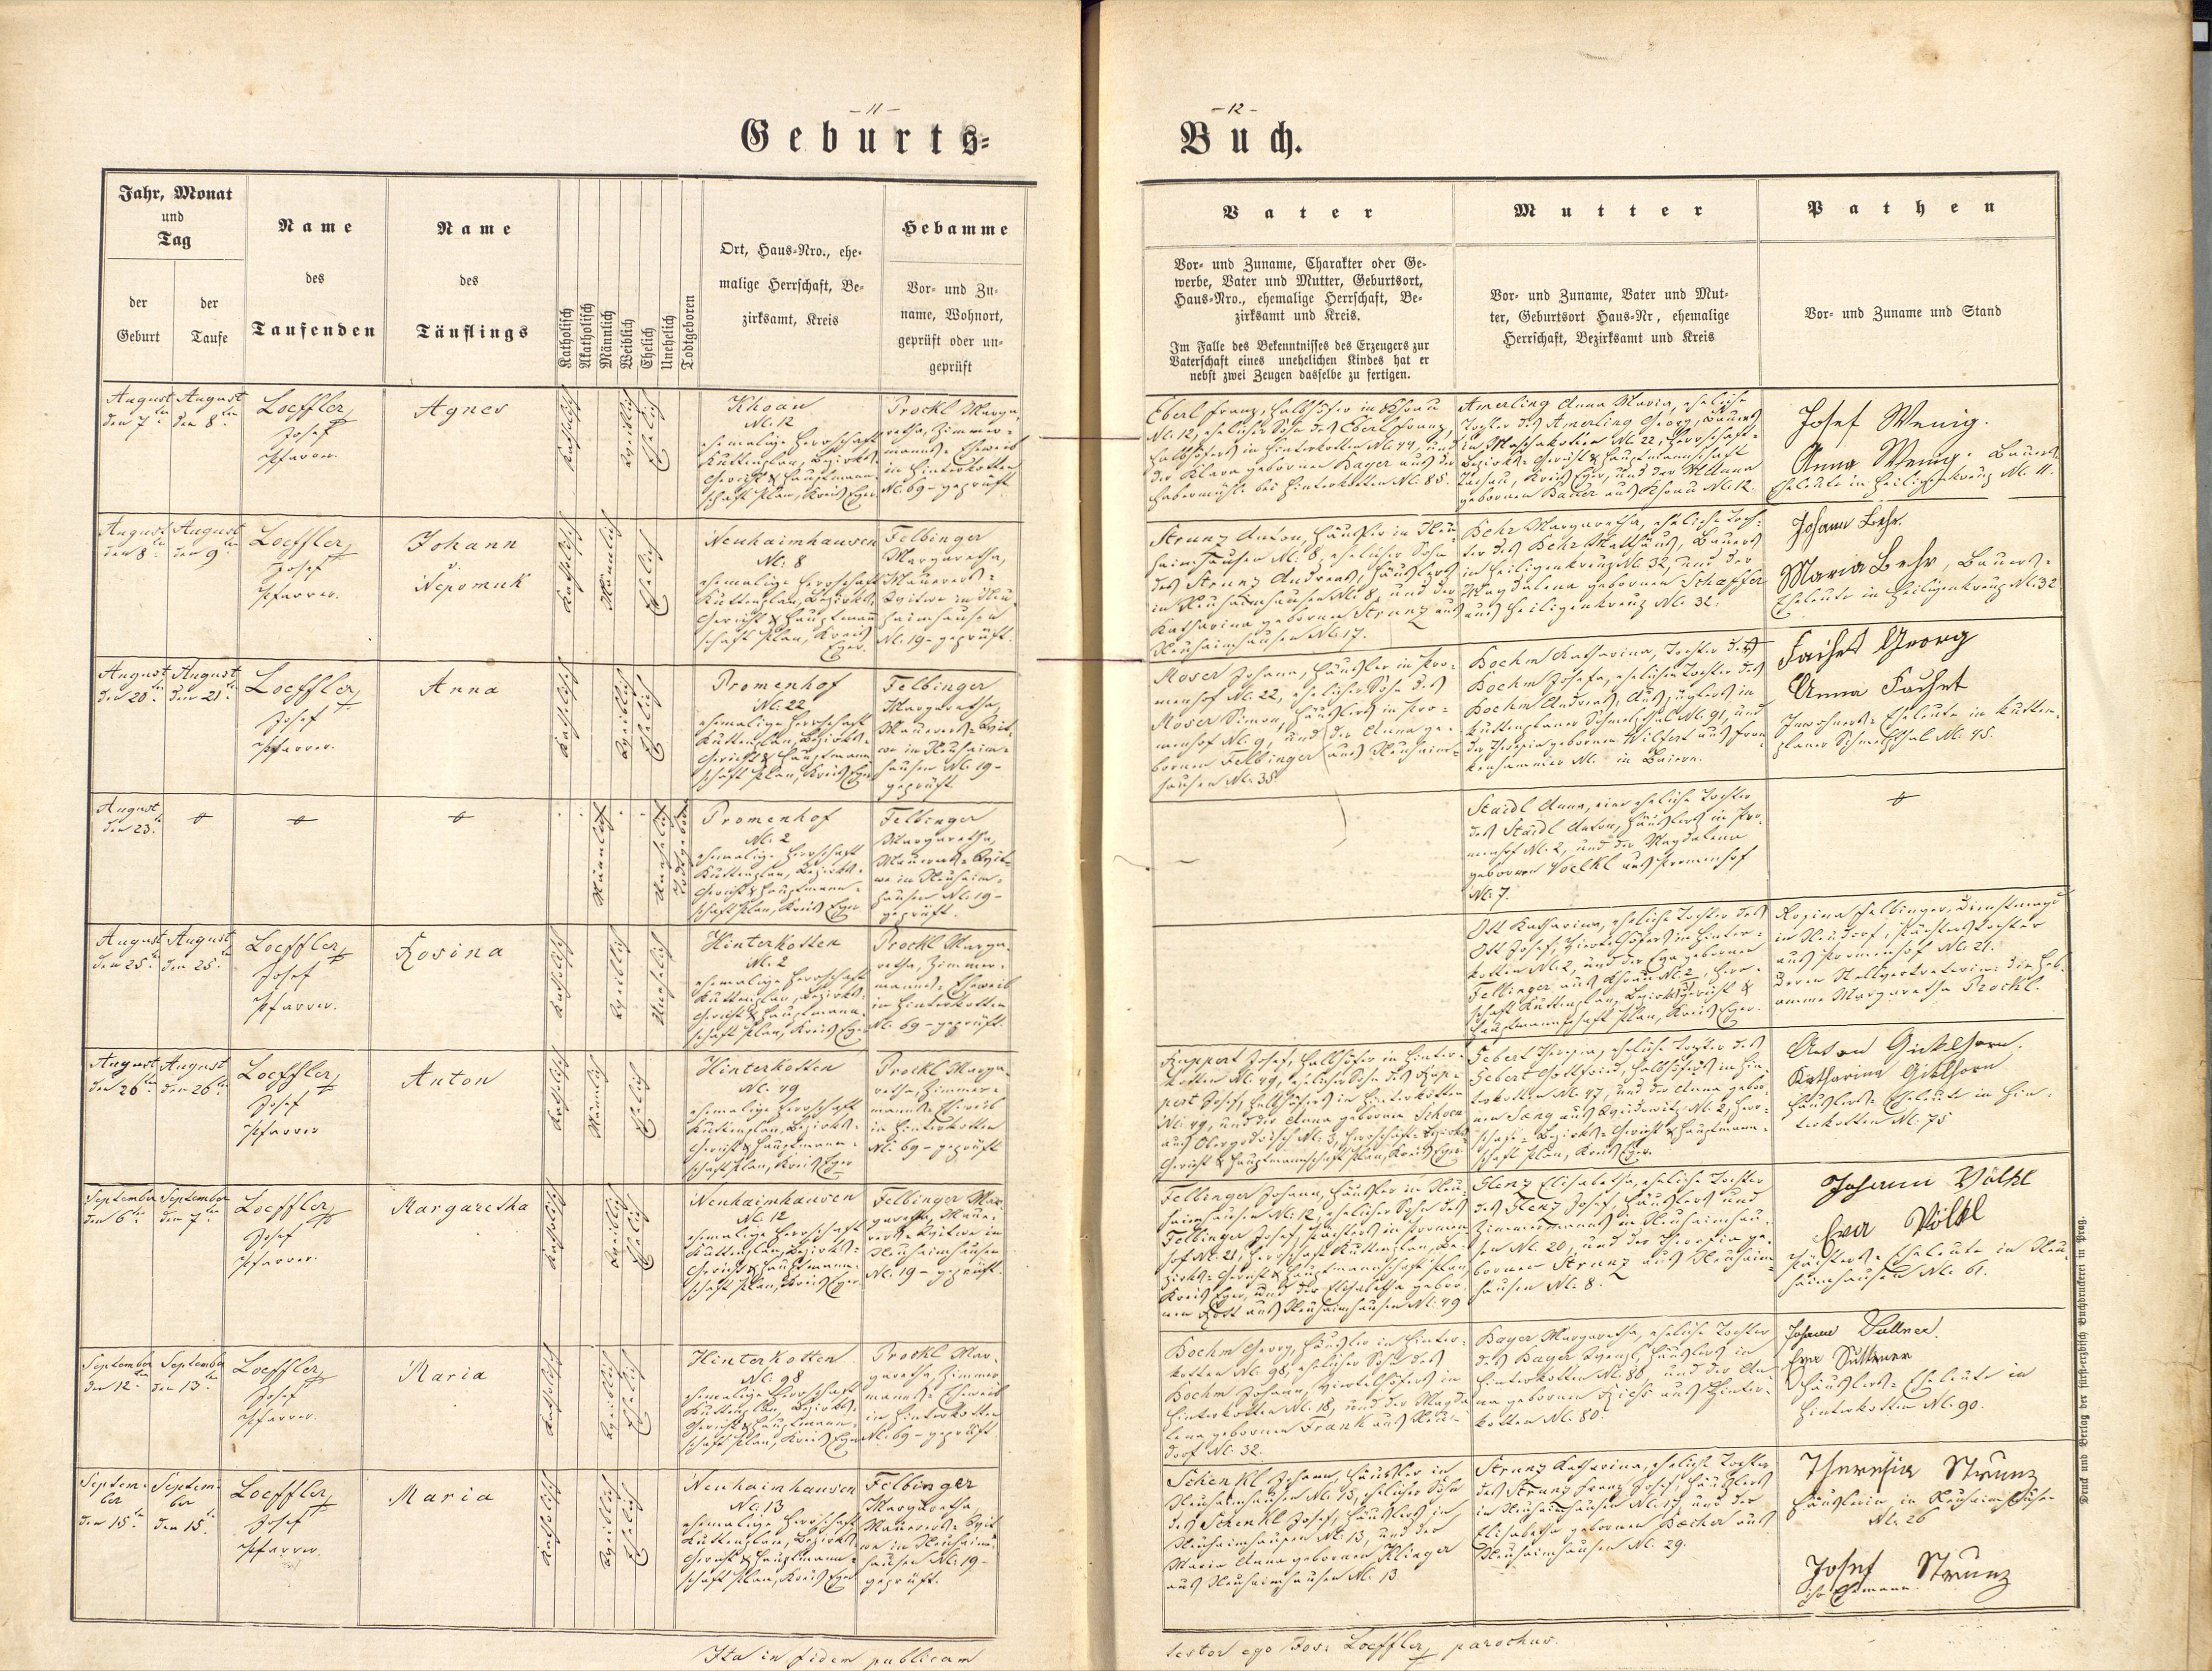 - 11 -
Geburts-
Jahr, Monat
und
Tag
der
Geburt
der
Taufe
Name
des
Taufenden
Name
des
Täuflings
Katholisch
Akatholisch
Männlich
Weiblich
Ehelich
Unehelich
Todtgeboren
Ort, Haus-Nro., ehe-
malige Herrschaft, Be-
zirksamt, Kreis
Hebamme
Vor- und Zu-
name, Wohnort,
geprüft oder un-
geprüft
August
den 7ten
August
den 8ten
Loeffler
Josef
Pfarrer.
Agnes
Katholisch
Weiblich
Ehelich
Khoau
N. 12
ehemalige Herrschaft
Kuttenplan, Bezirks-
Gericht & Hauptmann-
schaft Plan, Kreis Eger
Prockl Marga-
retha, Zimmer-
manns-Eheweib
in Hinterkotten
N. 69 - geprüft
August
den 8ten
August
den 9ten
Loeffler
Josef
Pfarrer.
Johann
v.
Nepomuk
Katholisch
Männlich
Ehelich
Neuhaimhausen
N. 8
ehemalige Herrschaft
Kuttenplan, Bezirks-
Gericht & Hauptmann
schaft Plan, Kreis
Eger.
Felbinger
Margaretha,
Maurers-
Witwe in Neu-
haimhausen
N. 19 - geprüft.
August
den 20ten
August
den 21ten
Loeffler
Josef
Pfarrer.
Anna
Katholisch
Weiblich
Ehelich
Promenhof
N. 22
ehemalige Herrschaft
Kuttenplan, Bezirks-
Gericht & Hauptmann
schaft Plan, Kreis Eger
Felbinger
Margaretha,
Maurers-Wit-
we in Neuhaim-
hausen N. 19 -
geprüft
August
den 23ten
Männlich
Unehelich
Todtgeboren
Promenhof
N. 2
ehemalige Herrschaft
Kuttenplan, Bezirks-
Gericht & Hauptmann-
schaft Plan, Kreis Eger
Felbinger
Margaretha,
Maurers-Wit-
we in Neuhaim-
hausen N. 19 -
geprüft.
August
den 25ten
August
den 25ten
Loeffler
Josef
Pfarrer.
Rosina
Katholisch
Weiblich
Unehelich
Hinterkotten
N. 2
ehemalige Herrschaft
Kuttenplan, Bezirks-
Gericht & Hauptmann-
schaft Plan, Kreis Eger
Prockl Marga-
retha, Zimmer-
manns-Eheweib
in Hinterkotten
N. 69 - geprüft.
August
den 26ten
August
den 26ten
Loeffler
Josef
Pfarrer
Anton
Katholisch
Männlich
Ehelich
Hinterkotten
N. 49
ehemalige Herrschaft
Kuttenplan, Bezirks-
Gericht & Hauptmann-
schaft Plan, Kreis Eger
Prockl Marga-
retha, Zimmer-
manns-Eheweib
in Hinterkotten
N. 69 - geprüft
September
den 6ten
September
den 7ten
Loeffler
Josef
Pfarrer.
Margaretha
Katholisch
Weiblich
Ehelich
Neuhaimhausen
N. 12
ehemalige Herrschaft
Kuttenplan, Bezirks-
Gericht & Hauptmann-
schaft Plan, Kreis Eger
Felbinger Mar-
garetha, Mau-
rers-Witwe in
Neuhaimhausen
N. 19 - geprüft.
September
den 12ten
September
den 13ten
Loeffler
Josef
Pfarrer.
Maria
Katholisch
Weiblich
Ehelich
Hinterkotten
N. 98
ehemalige Herrschaft
Kuttenplan, Bezirks-
Gericht & Hauptmann-
schaft Plan, Kreis Eger
Prockl Mar-
garetha, Zimmer-
manns-Eheweib
in Hinterkotten
N. 69 - geprüft.
Septem-
ber
den 15ten
Septem-
ber
den 15ten
Loeffler
Josef
Pfarrer.
Maria
Katholisch
Weiblich
Ehelich
Neuhaimhausen
N. 13
ehemalige Herrschaft
Kuttenplan, Bezirks-
Gericht & Hauptmann-
schaft Plan, Kreis Eger
Felbinger
Margaretha
Maurers-Wit-
we in Neuhaim-
hausen N. 19 -
geprüft.
Ita in fidem publicam
- 12 -
Buch.
Vater
Vor- und Zuname, Charakter oder Ge-
werbe, Vater und Mutter, Geburtsort,
Haus-Nro., ehemalige Herrschaft, Be-
zirksamt und Kreis.
Im Falle des Bekenntnisses des Erzeugers zur
Vaterschaft eines unehelichen Kindes hat er
nebst zwei Zeugen dasselbe zu fertigen.
Mutter
Vor- und Zuname, Vater und Mut-
ter, Geburtsort Haus-Nr, ehemalige
Herrschaft, Bezirksamt und Kreis
Pathen
Vor- und Zuname und Stand
Eberl Franz, Halbhöfer in Khoau
N. 12, ehelicher Sohn des Eberl Franz,
Halbhöfers in Hinterkotten N. 44, und
der Klara gebornen Bayer aus der
Habermühle bei Hinterkotten N. 85.
Amerling Anna Maria, eheliche
Tochter des Amerling Georg, Bauers
in N. 22, Herrschaft-
Bezirks-Gericht & Hauptmannschaft
Tachau, Kreis Eger, und der M. Anna
gebornen Bauer aus Khoau N. 12.
Josef Wenig.
Anna Wenig. Bauers-
Eheleute in Heiligenkreuz N. 11.
Strunz Anton, Häusler in Neu-
haimhausen N. 8, ehelicher Sohn
des Strunz Andreas, Häuslers
in Neuhaimhausen N. 8, und der
Katharina gebornen Strunz aus
Neuhaimhausen N. 17.
Behr Margaretha, eheliche Toch-
ter des Behr Matthäus, Bauers
in Heiligenkreuz N. 32, und der
Magdalena gebornen Schaffer
aus Heiligenkreuz N. 32.
Johann Behr.
Maria Behr, Bauers-
Eheleute in Heiligenkreuz N. 32
Moser Johann, Häusler in Pro-
menhof N. 22, ehelicher Sohn des
Moser Simon, Häuslers in Pro-
menhof N. 9, und der Anna ge-
bornen Felbinger aus Neuhaim-
hausen N. 35.
Boehm Katharina, Tochter der
Boehm Josefa, ehelichen Tochter des
Boehm Andreas, Auszüglers in
Kuttenplaner Schmelzthal N. 91, und
der Theresia gebornen Wilfert aus Fran-
kenhammer N. in Baiern.
Georg
Anna
Inwohners-Eheleute in Kutten-
planer Schmelzthal N. 45.
Staidl Anna, eine eheliche Tochter
des Staidl Anton, Häuslers in Pro-
menhof N. 2, und der Magdalena
gebornen Voelkl aus Promenhof
N. 7.
Ott Katharina, eheliche Tochter des
Ott Josef, Viertelhöfers in Hinter-
kotten N. 2, und der Eva gebornen
Felbinger aus Khoau N. 2, Herr-
schaft Kuttenplan, Bezirksgericht &
Hauptmannschaft Plan, Kreis Eger.
Rosina Felbinger, Dienstmagd
in Neudorf, Pächterstochter
aus Promenhof N. 21.
deren Stellvertreterin: die Heb-
amme Margaretha Prockl.
Ruppert Josef, Halbhöfer in Hinter-
kotten N. 49, ehelicher Sohn des Rup-
pert Josef, Halbhöfers in Hinterkotten
N. 49, und der Anna gebornen Schoen
aus Obergodrisch N. 3, Herrschaft-Bezirks-
Gericht & Hauptmannschaft Plan, Kreis Eger.
Gebert Theresia, eheliche Tochter des
Gebert Gottfried, Halbhöfers in Hin-
terkotten N. 47, und der Anna gebor-
nen Sang aus N. 2, Herr-
schaft-Bezirks-Gericht & Hauptmann-
schaft Plan, Kreis Eger.
Anton Gickelhorn.
Katharina Giklhorn
Häuslers-Eheleute in Hin-
terkotten N. 75
Felbinger Johann, Häusler in Neu-
haimhausen N. 12, ehelicher Sohn des
Felbinger Josef, Pächters in Promen-
hof N. 21, Herrschaft Kuttenplan, Be-
zirks-Gericht & Hauptmannschaft Plan
Kreis Eger, und der Elisabetha gebor-
nen aus Neuhaimhausen N. 49
Elisabetha, eheliche Tochter
des Josef, Häuslers und
Zimmermanns in Neuhaimhau-
sen N. 20, und der Theresia ge-
bornen Strunz aus Neuhaim-
hausen N. 8.
Johann Völkl
Eva Völkl
Pächters-Eheleute in Neu-
haimhausen N. 61.
Boehm Georg, Häusler in Hinter-
kotten N. 98, ehelicher Sohn des
Boehm Johann, Viertelhöfers in
Hinterkotten N. 18, und der Magda-
lena gebornen Frank aus Neu-
dorf N. 32.
Bayer Margaretha, eheliche Tochter
des Bayer Wenzl, Häuslers in
Hinterkotten N. 80, und der An-
na gebornen aus Hinter-
kotten N. 80.
Johann
Eva Suttner
Häuslers-Eheleute in
Hinterkotten N. 90.
Schenkl Johann, Häusler in
Neuhaimhausen N. 13, ehelicher Sohn
des Schenkl Josef, Häuslers in
Neuhaimhausen N. 13, und der
Maria Anna gebornen Klinger
aus Neuhaimhausen N. 13
Strunz Katharina, eheliche Tochter
des Strunz Franz Josef, Häuslers
in Neuhaimhausen N. 17, und der
Elisabetha gebornen Becher aus
Neuhaimhausen N. 29.
Theresia Strunz
Häuslerin in Neuhaimhause-
N. 26
Josef Strunz
ihr Ehemann.
Druck und Verlag der fürst-erzbisch. Buchdruckerei in Prag.
testor ego Jos. Loeffler, parochus.